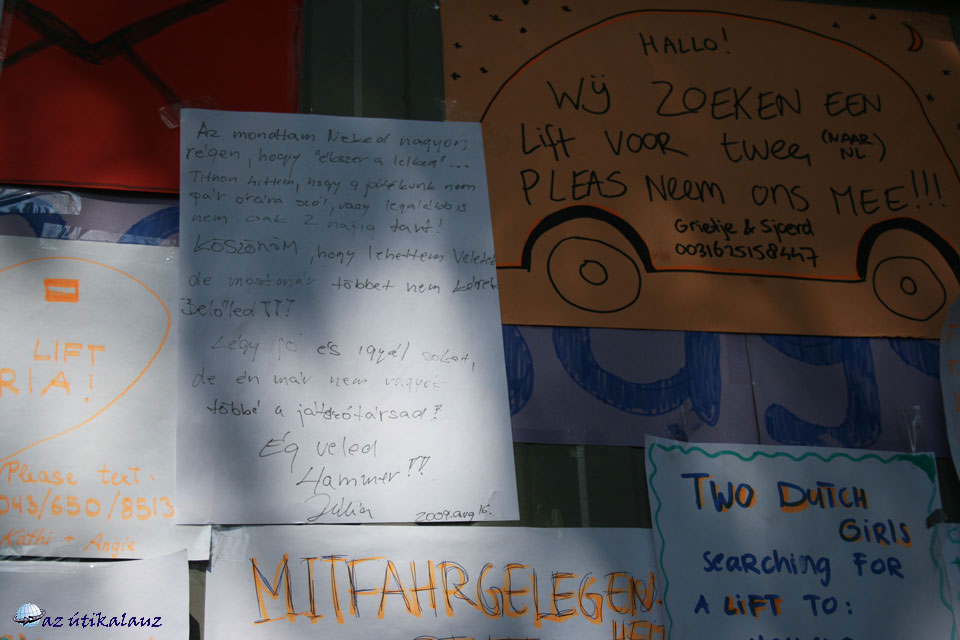 Az mondtam Neked nagyon
régen, hogy "ékszer a lelked"...
Titkon hittem, hogy a játékunk nem
pár órára szól, vagy legalábbis
nem csak 2 napig tart!
KÖSZÖNÖM, hogy lehettem Veled
de mostmár többet nem kérek
Belőled!!!
Légy jó és igyál sokat,
de én már nem vagyok
többé a játszótársad!
Ég veled
Hammer!!
Júlia
2009. aug 16.
HALLO!
WIJ ZOEKEN EEN
Lift VOOR twee, (NAAR NL)
PLEAS Neem ons MEE!!!
Grietje & Sjoerd
0031625158447
LIFT
RIA!
Please text:
043/650/8513
Kathi + Angie
MITFAHRGELEGEN.
HEIT
TWO DUTCH
GIRLS
searching FOR
A LIFT TO:
az útikalauz